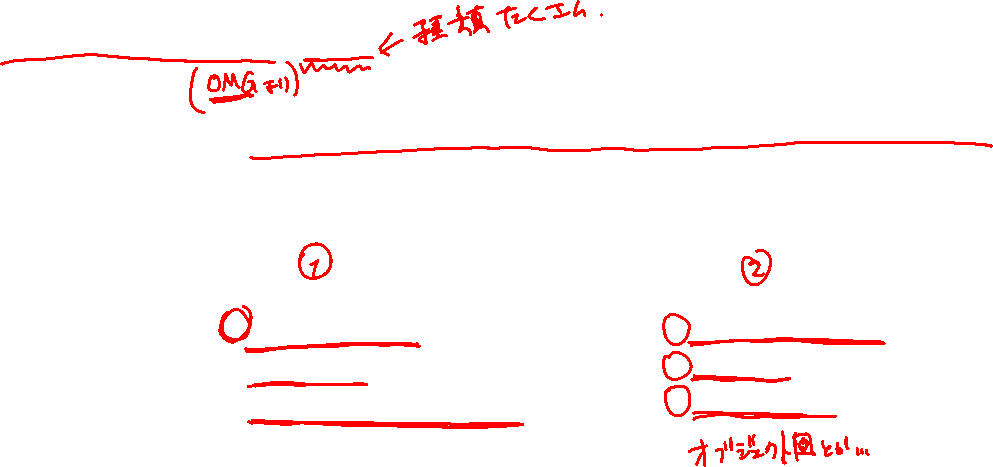 ← 種類たくさん.
(OMGより)
① ②
オブジェクト図とか...